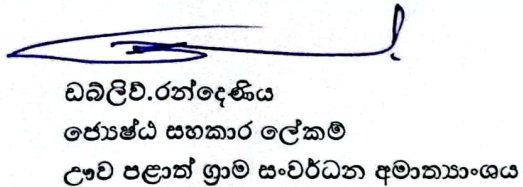 ඩබ්ලිව්.රන්දෙණිය
ජ්‍යෙෂ්ඨ සහකාර ලේකම්
ඌව පළාත් ග්‍රාම සංවර්ධන අමාත්‍යාංශය